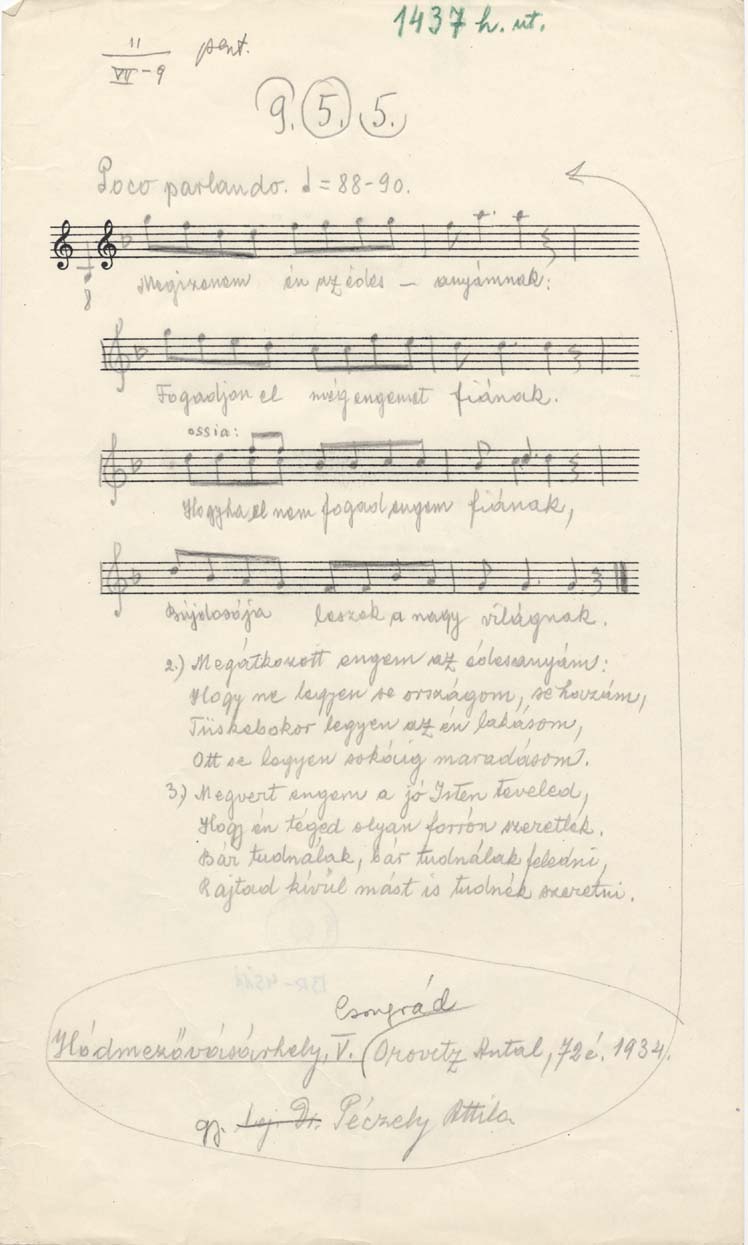 1437 h. ut.
11
VII-9
pent.
9. 5. 5.
Poco parlando. ♩=88-90.
8
Megizenem én az édes – anyámnak:
Fogadjon el még engemet fiának.
ossia:
Hogyha el nem fogad engem fiának,
Bújdosója leszek a nagy világnak.
2.) Megátkozott engem az édesanyám:
Hogy ne legyen se országom, se hazám,
Tüskebokor legyen az én lakásom,
Ott se legyen sokáig maradásom.
3.) Megvert engem a jó Isten teveled,
Hogy én téged olyan forrón szeretlek.
Bár tudnálak, bár tudnálak feledni,
Rajtad kívül mást is tudnék szeretni.
Csongrád
Hódmezővásárhely, V. (Orovetz Antal, 72 é. 1934.
gy. Lej. Dr. Péczely Attila